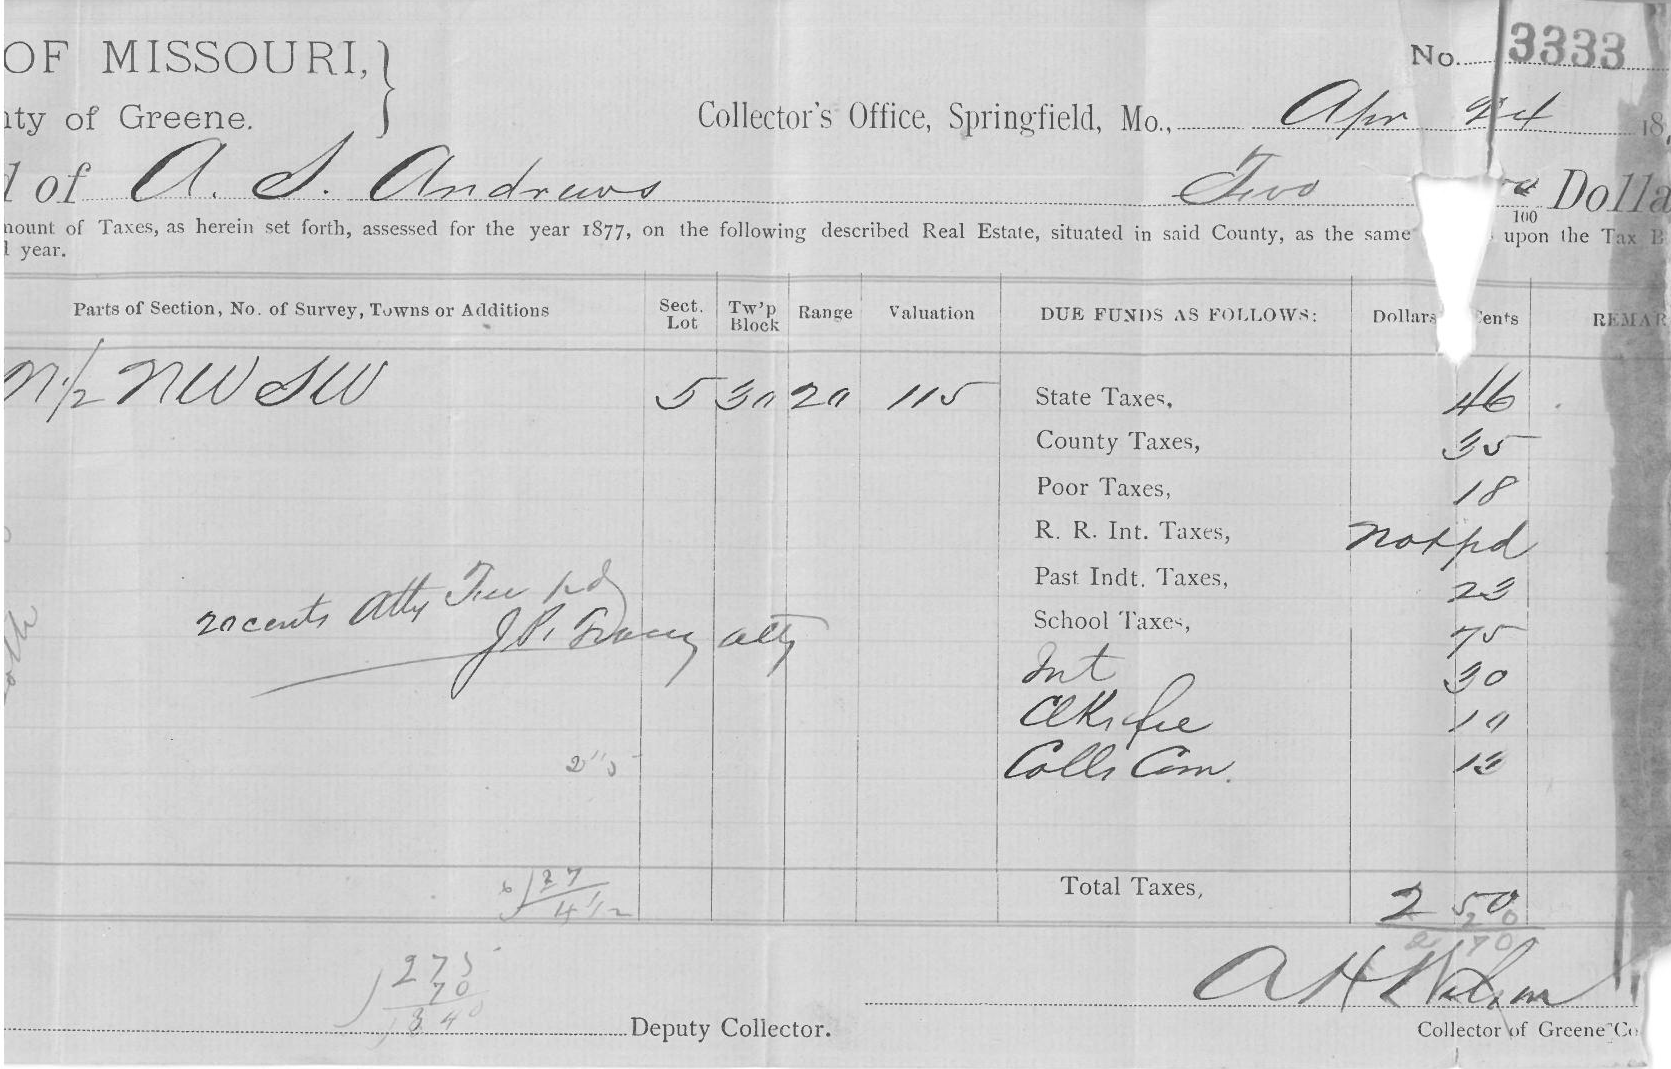 OF MISSOURI,
No. 3333
nty of Greene.
Collector's Office, Springfield, Mo., Apr 24 18
d of A. S. Andrews Two 100 Dolla
mount of Taxes, as herein set forth, assessed for the year 1877, on the following described Real Estate, situated in said County, as the same upon the Tax B
l year.
Parts of Section, No. of Survey, Towns or Additions Sect. Lot Tw'p Block Range Valuation DUE FUNDS AS FOLLOWS: Dollars Cents REMAR
N 1/2 NW SW 5 30 20 115 State Taxes, 46
County Taxes, 35
Poor Taxes, 18
R. R. Int. Taxes, not pd
Past Indt. Taxes, 23
20 cents Atty Fee pd
School Taxes, 75
J. P. Tracey atty
Int 30
Clks fee 10
Colls Com. 13
Total Taxes, 2 50
20
2 70
6 27
4 1/2
275
70
A H Wilson
Deputy Collector.
Collector of Greene Co